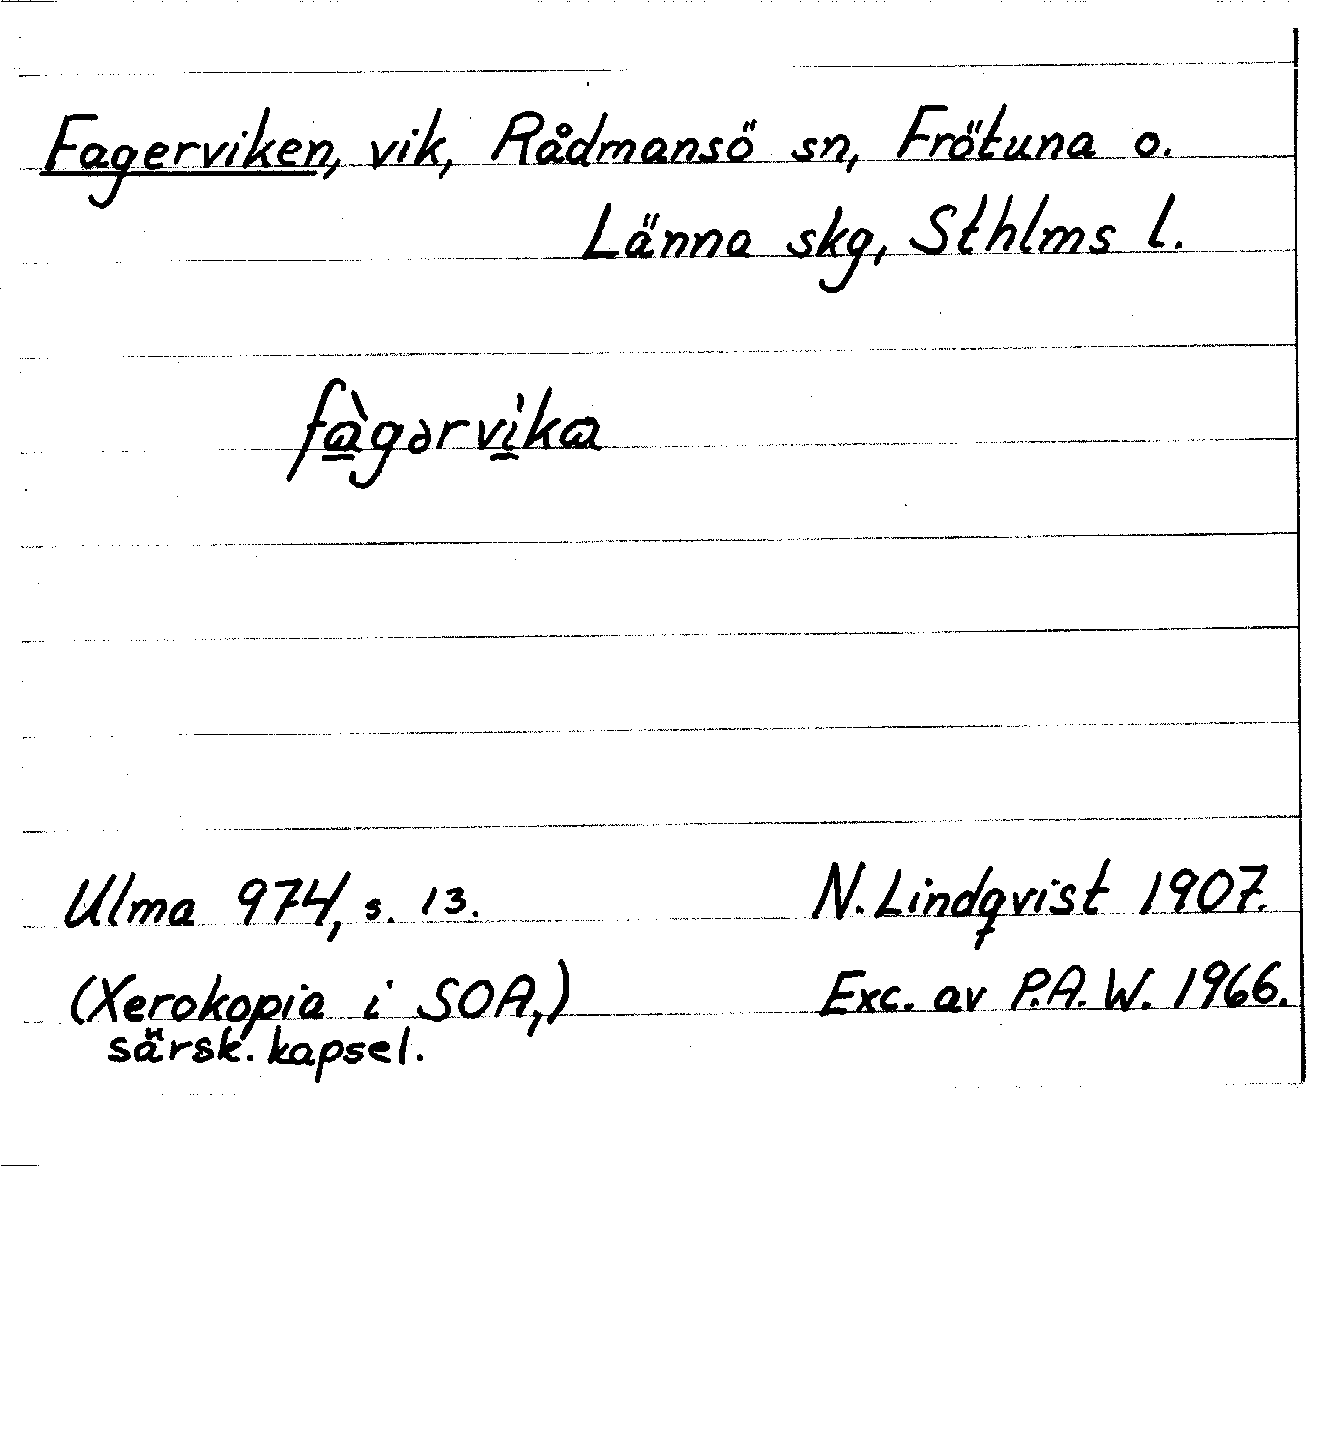 Fagerviken, vik, Rådmansö sn, Frötuna o.
Länna skg, Sthlms l.
fà̱gərvì̱ka
Ulma 974, s. 13. N. Lindqvist 1907.
(Xerokopia i SOA,) Exc. av P.A.W. 1966.
särsk. kapsel.